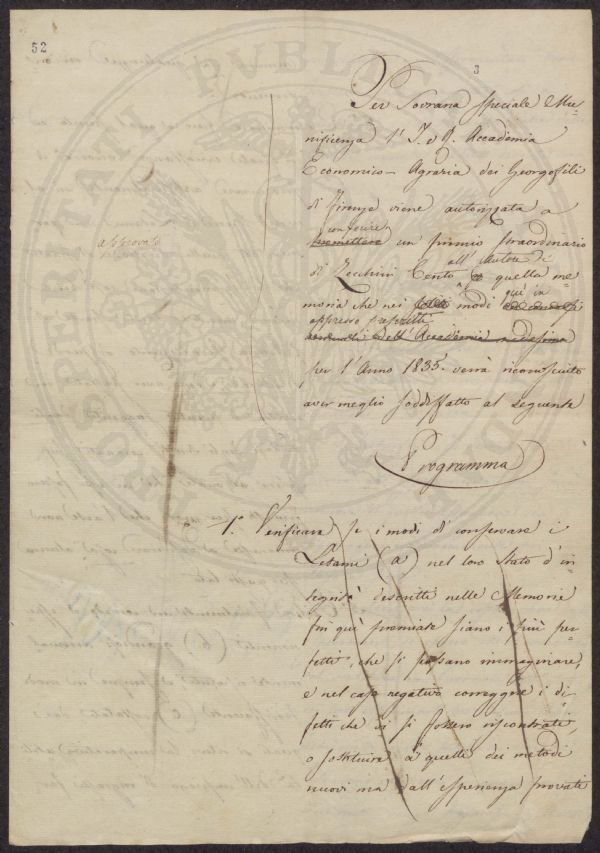 52
3
Per Sovrana speciale Mu-
nificenza l'I. e R. Accademia
Economico-Agraria dei Georgofili
di Firenze viene autorizzata a
conferire
premettere un premio straordinario
all' Autore di
di Zecchini Cento quella me-
moria che nei modi qui in
appresso prescritti
dell' Accademia medesima
per l'Anno 1835. verrà riconosciuta
aver meglio soddisfatto al seguente
approvato
Programma
1.° Verificare se i modi di conservare i
Letami (a) nel loro stato d'in
descritti nelle Memorie
fin quì premiate siano i più per-
fetti, che si possano immaginare,
e nel caso negativo correggere i di-
fetti che vi si fossero riscontrati,
o sostituire a quelli dei metodi
nuovi ma dall'esperienza provati
PROSPERITATI PVBLICAE